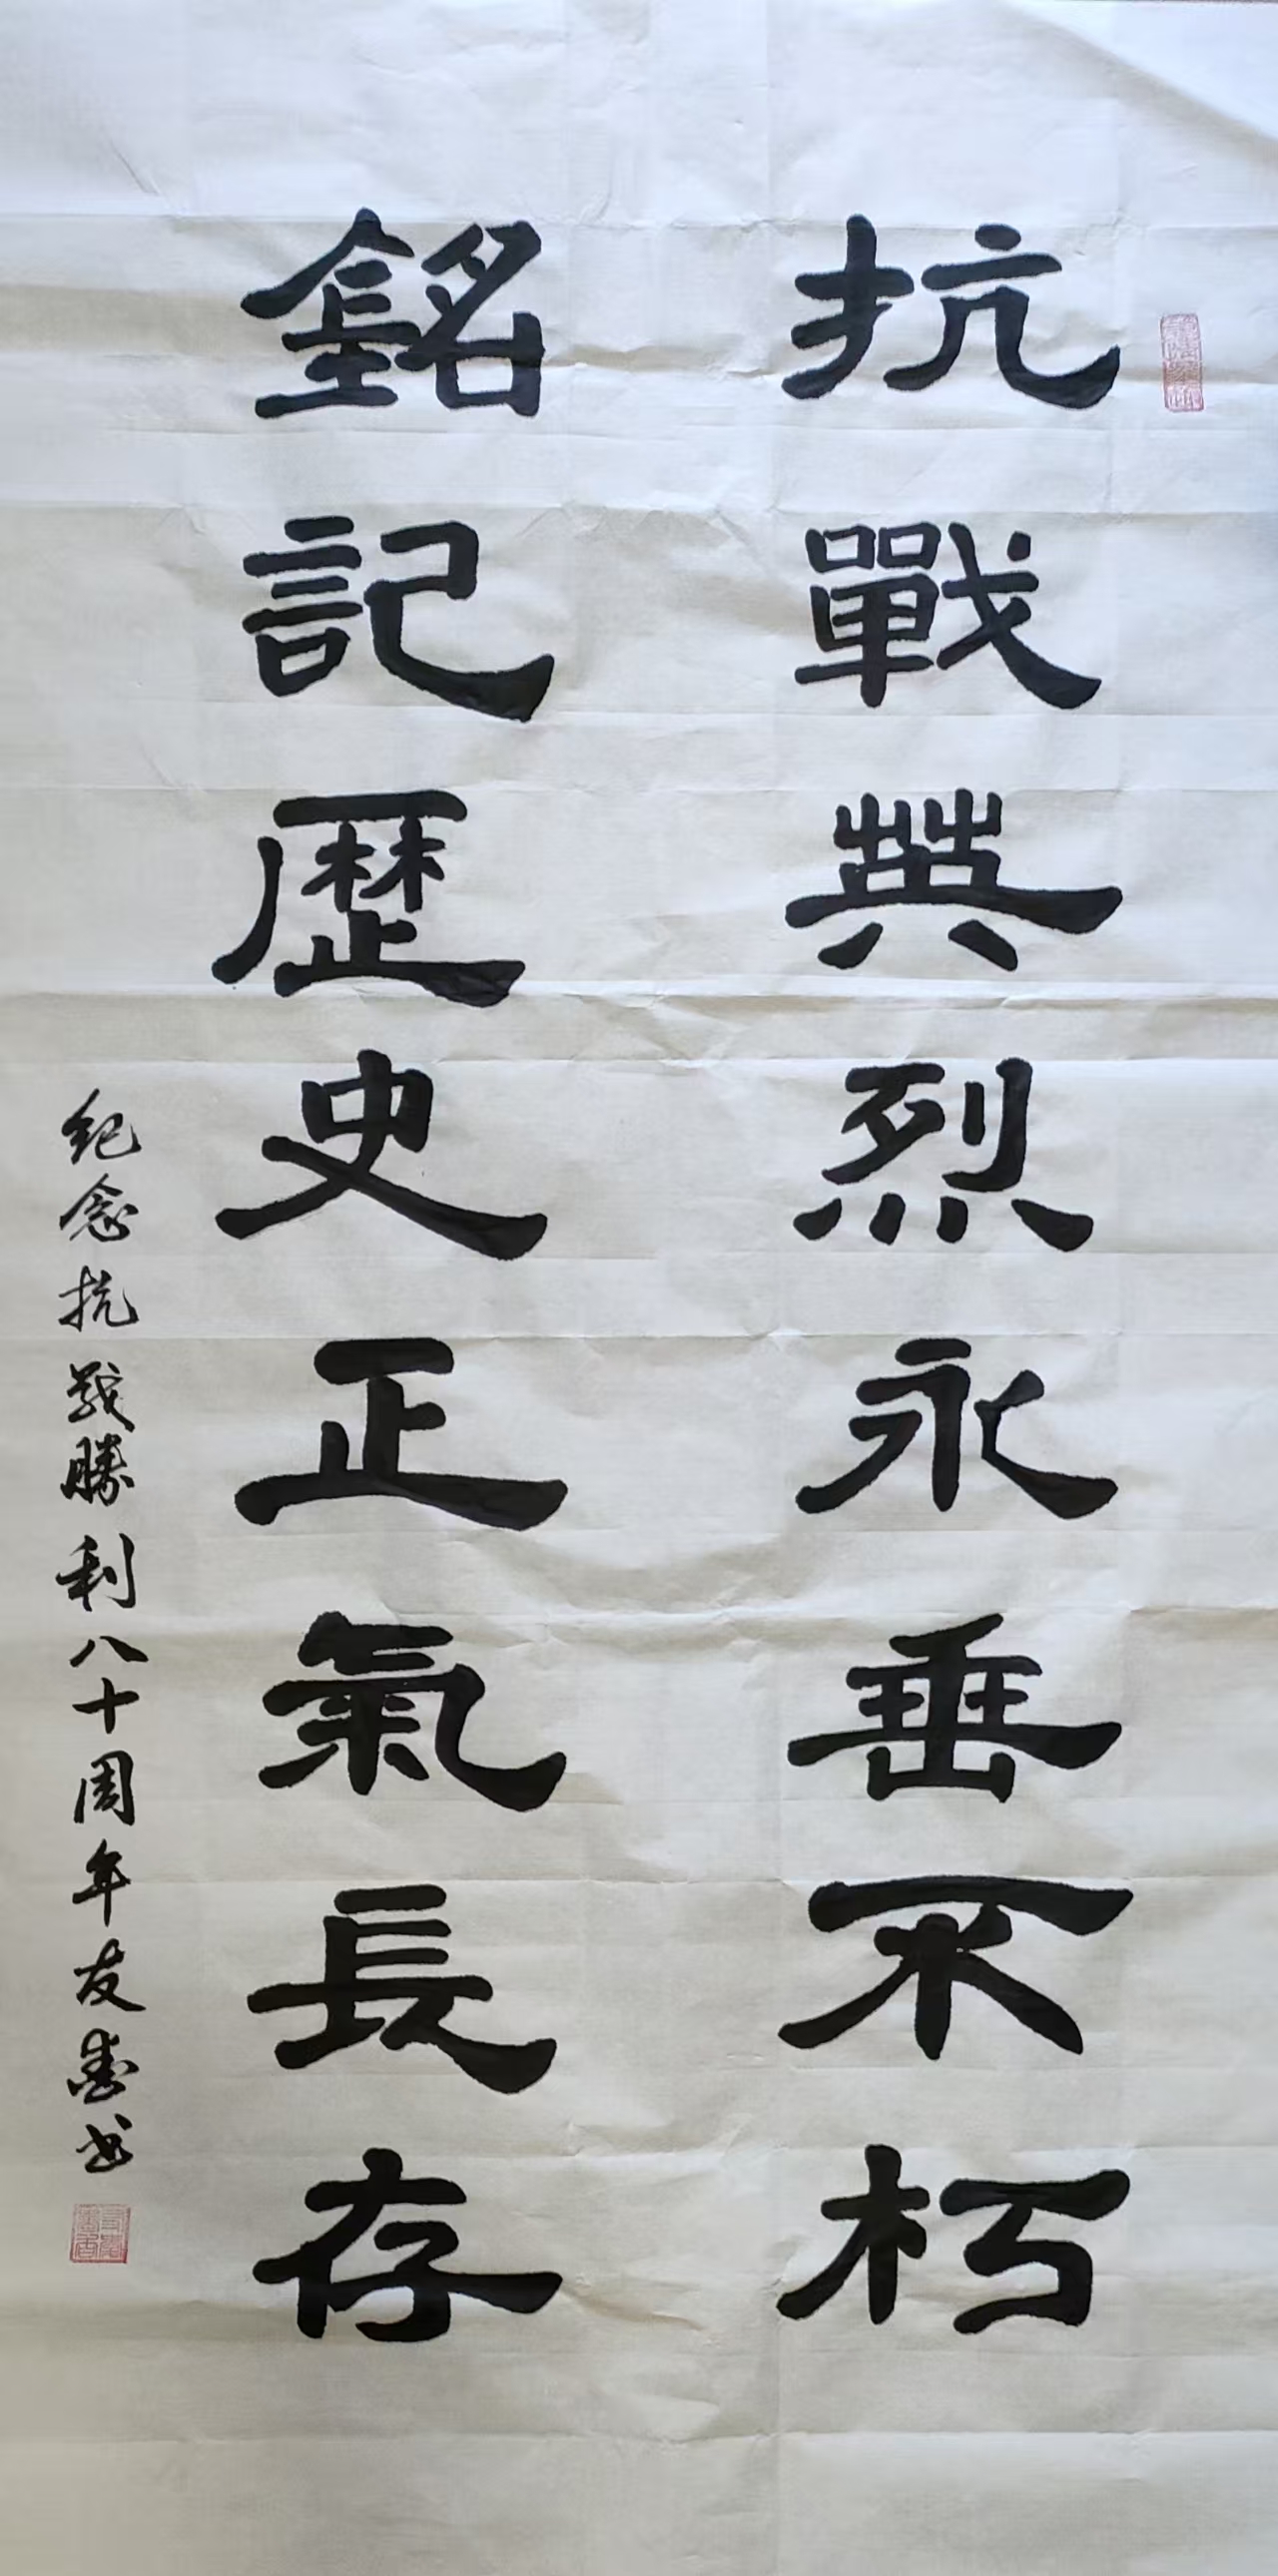 抗戰英烈永垂不朽
銘記歷史正氣長存
纪念抗战勝利八十周年友春书